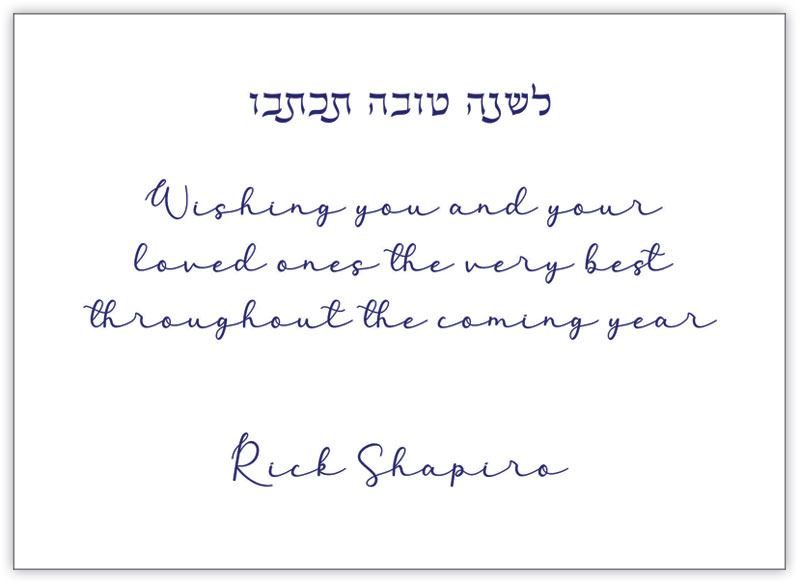 לשנה טובה תכתבו
Wishing you and your
loved ones the very best
throughout the coming year
Rick Shapiro